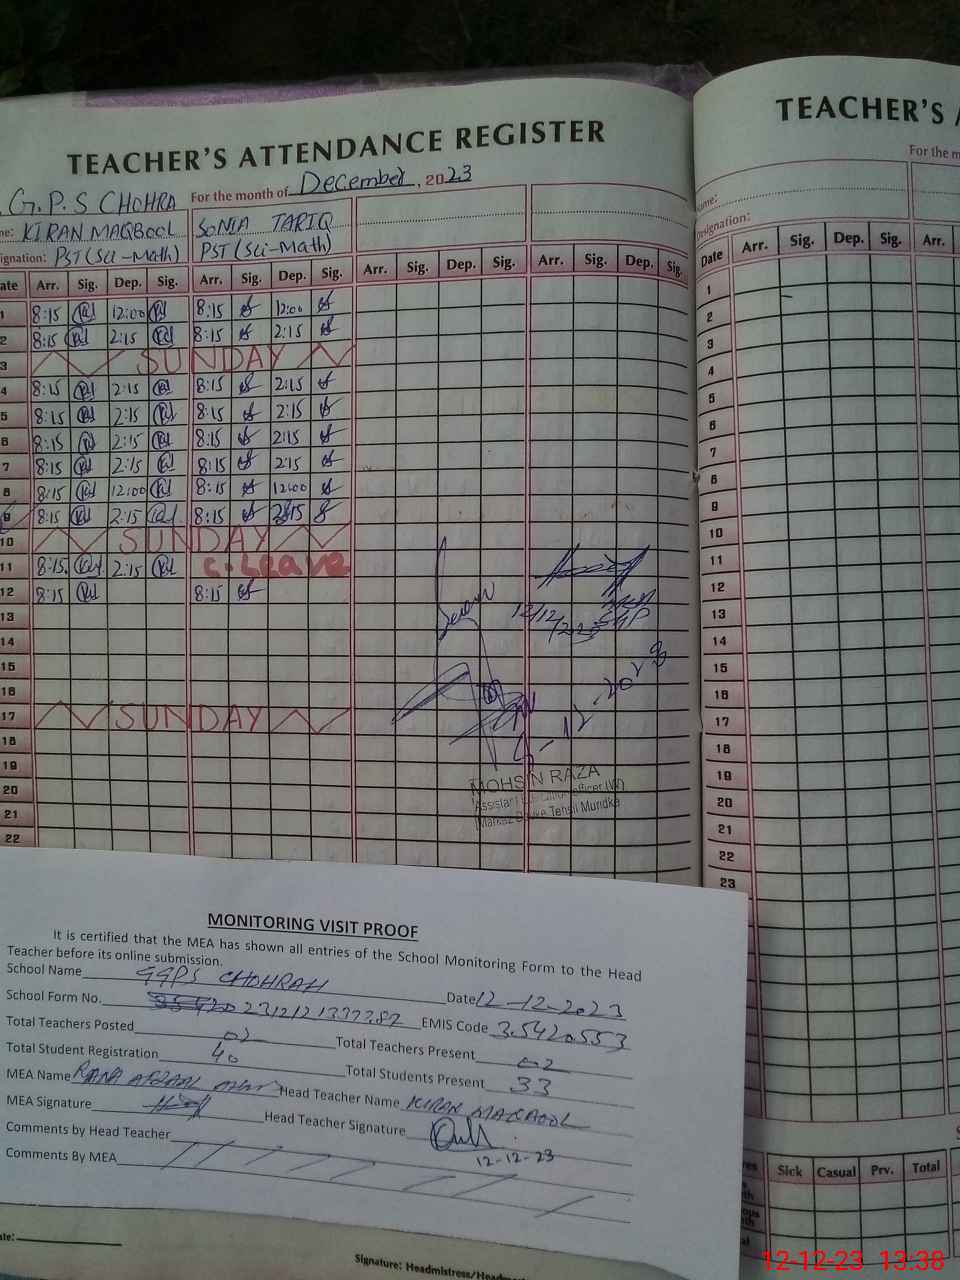 TEACHER'S ATTENDANCE REGISTER
G.P.S CHOHRA For the month of December, 2023
KIRAN MAQBOOL SONIA TARIQ
PST (Sci-Math) PST (Sci-Math)
Arr. Sig. Dep. Sig. Arr. Sig. Dep. Sig. Arr. Sig. Dep. Sig. Arr. Sig. Dep. Sig.
1 8:15 12:00 8:15 12:00
2 8:15 2:15 8:15 2:15
3 SUNDAY
4 8:15 2:15 8:15 2:15
5 8:15 2:15 8:15 2:15
6 8:15 2:15 8:15 2:15
7 8:15 2:15 8:15 2:15
8 8:15 12:00 8:15 12:00
9 8:15 2:15 8:15 2:15
10 SUNDAY
11 8:15 2:15 C.Leave
12 8:15 8:15
13
14
15
16
17 SUNDAY
18
19
20
21
22
12/12/
-12-2023
MOHSIN RAZA
Assistant
Tehsil
TEACHER'S
For the m
Designation:
Date Arr. Sig. Dep. Sig. Arr.
1
2
3
4
5
6
7
8
9
10
11
12
13
14
15
16
17
18
19
20
21
22
23
Sick Casual Prv. Total
MONITORING VISIT PROOF
It is certified that the MEA has shown all entries of the School Monitoring Form to the Head
Teacher before its online submission.
School Name GGPS CHOHRAH Date 12-12-2023
School Form No. EMIS Code 35420553
Total Teachers Posted 02 Total Teachers Present 02
Total Student Registration 40 Total Students Present 33
MEA Name RANA AFZAAL Head Teacher Name KIRAN MAQBOOL
MEA Signature Head Teacher Signature
12-12-23
Comments by Head Teacher
Comments By MEA
Signature: Headmistress/Headm
12-12-23 13:38